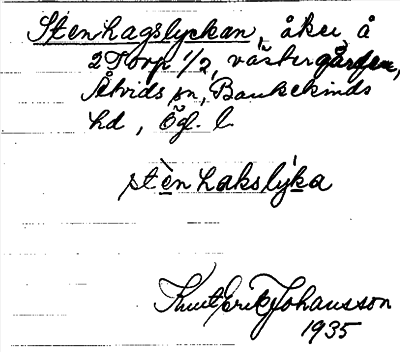 Stenhagslyckan, åker å
2 Torp 1/2, västergården,
Åtvids sn, Bankekinds
hd, Ög. l.
stènhakslỳka
Knut Erik Johansson
1935